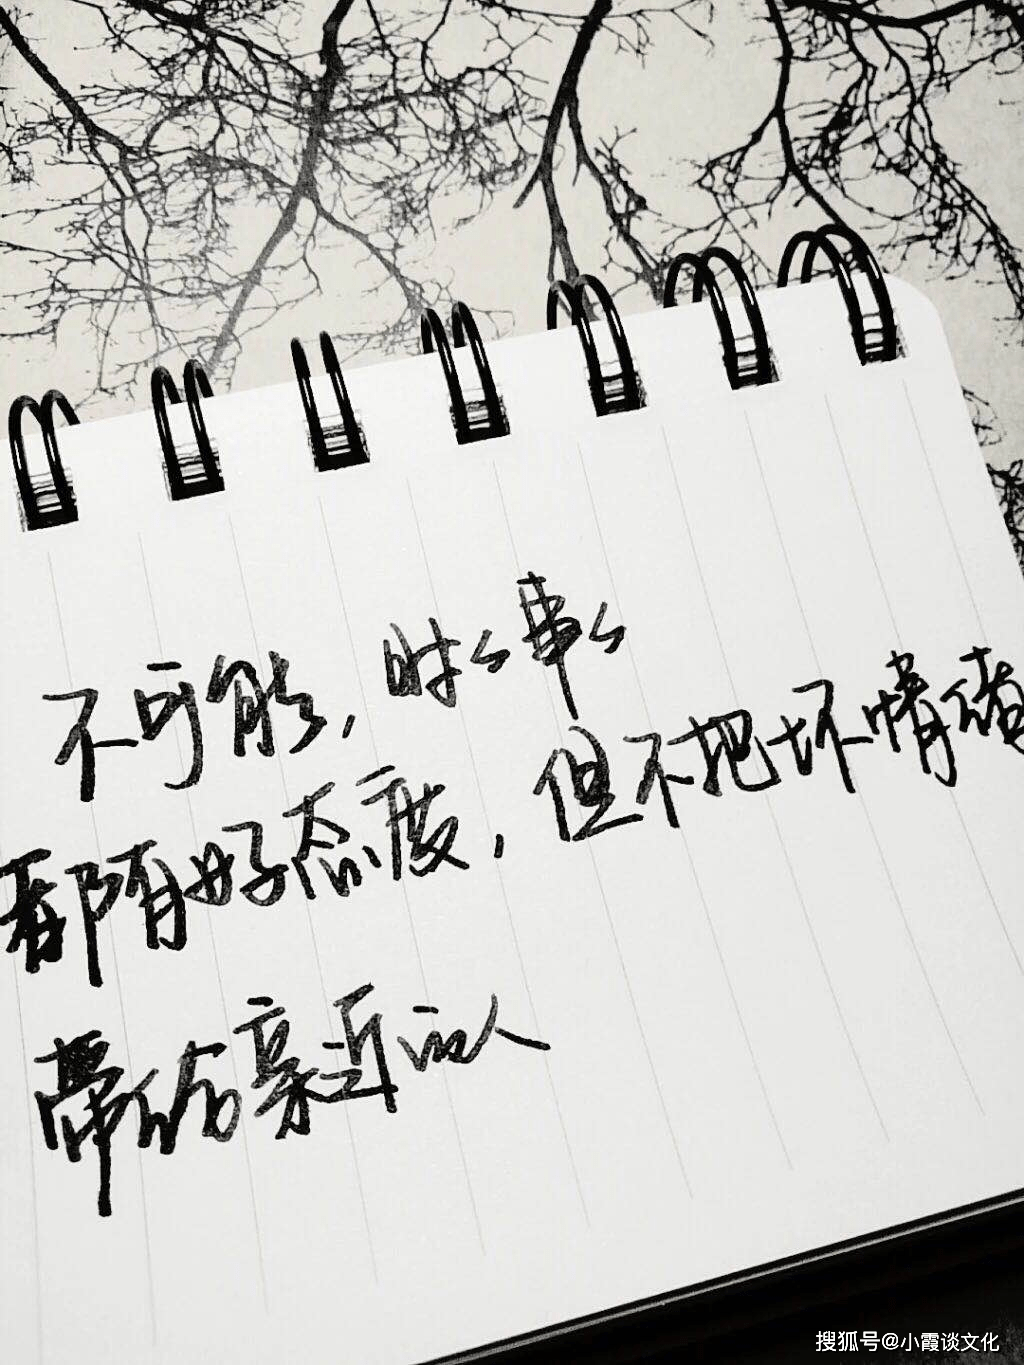 不可能，时时事事
都有好态度，但不把坏情绪
带给亲近的人
搜狐号@小霞谈文化